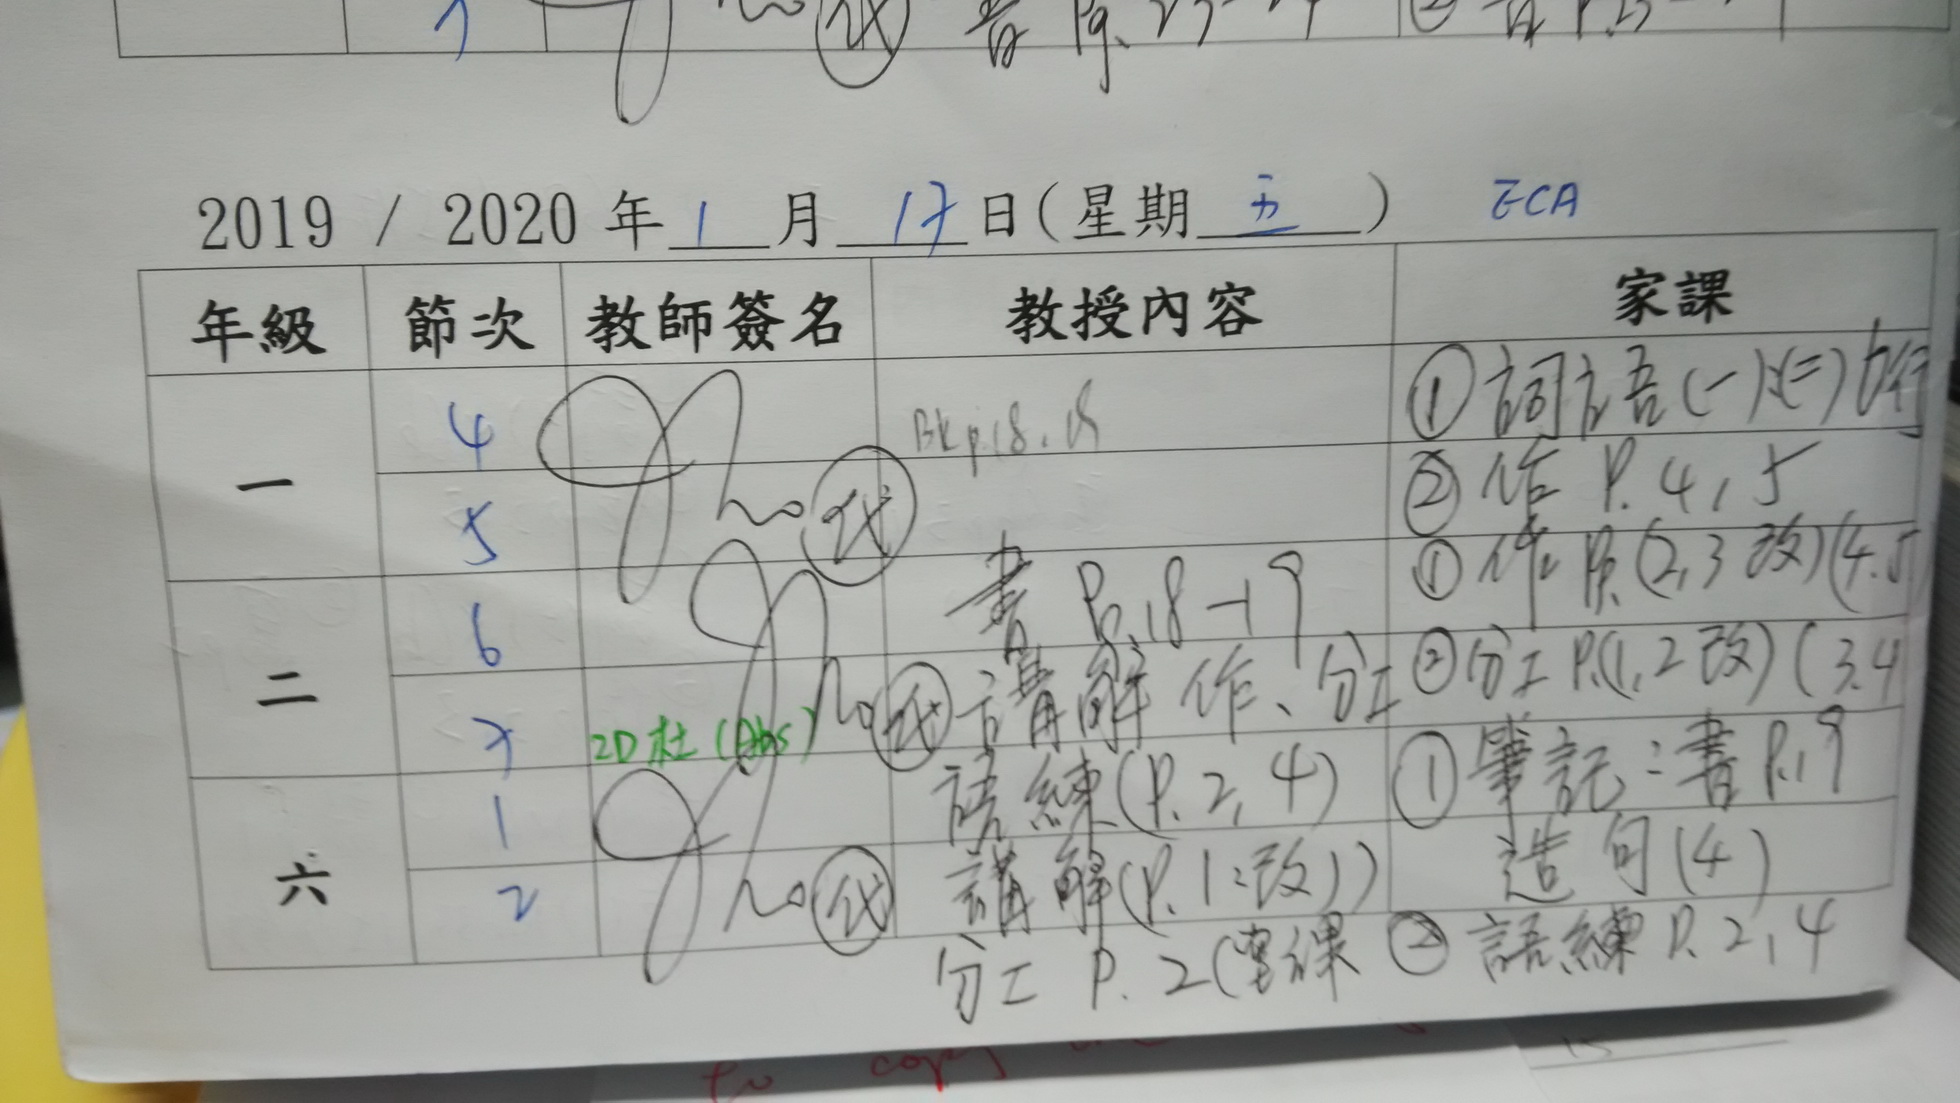 書 Pg. 23-24 ② 
2019 / 2020 年 1 月 17 日(星期 五 ) ECA
年級 節次 教師簽名 教授內容 家課
一 4 Bk p.18, 19 ① 詞語(一)(二)
5 代 ② 作 P. 4, 5
二 6 書 P. 18-19 ① 作 P. (2,3 改)(4.5
7 2D 杜 (Abs) 代 講解 作、分工 ② 分工 P.(1,2 改) (3.4
六 1 語練(P. 2, 4) ① 筆記：書 P.19
2 代 講解(P. 1:改1) 造句(4)
分工 P. 2 (堂課 ② 語練 P. 2, 4
to copy
15